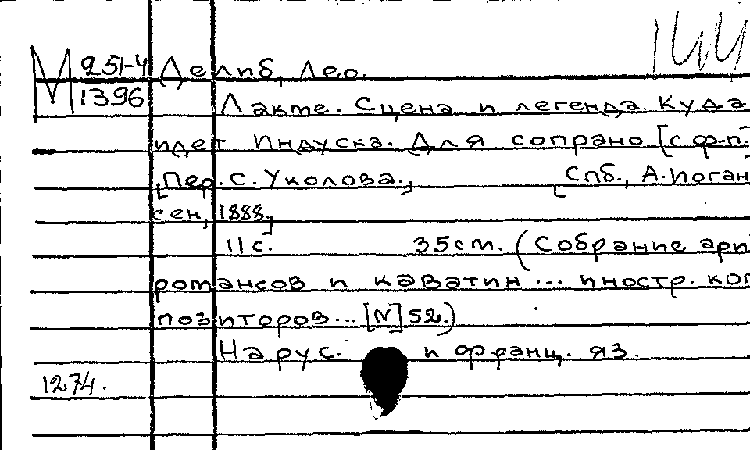 144
М 251-4 Делиб, Лео.
1396 Лакме. Сцена и легенда Куда
идет Индуска. Для сопрано [с ф-п.
[Пер. С. Уколова., Спб., А. Иоган
сен, 1888,]
11 с. 35 см. (Собрание арий
романсов и каватин ... иностр. ком
позиторов... [N] 52.)
На рус. и франц. яз.
1274.